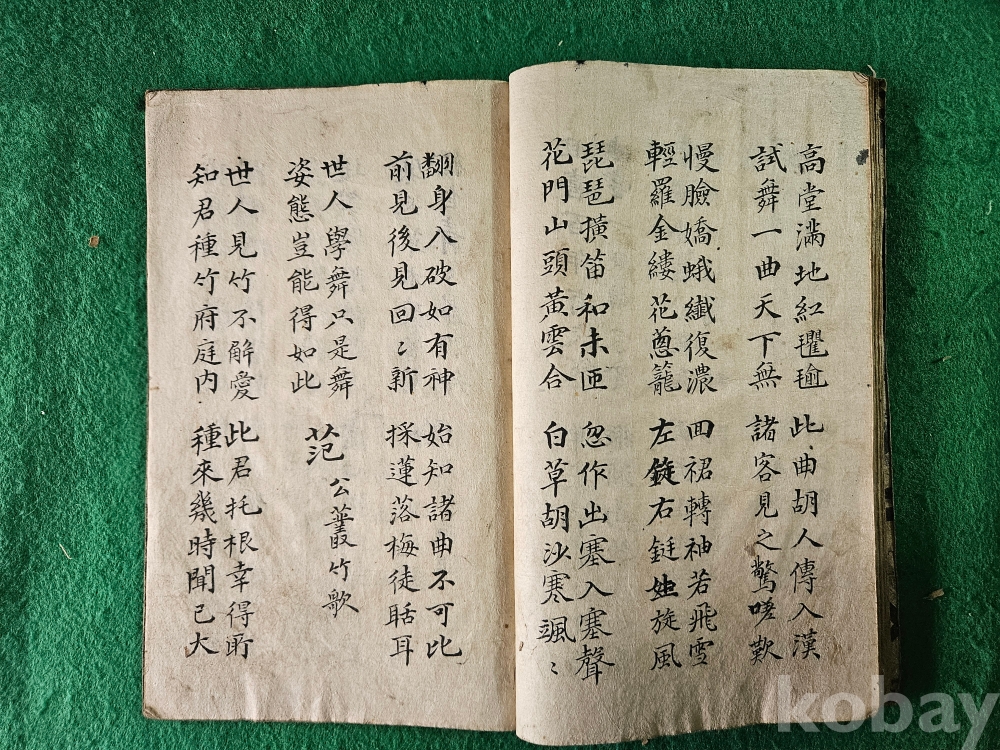 高堂滿地紅瓘瑜
試舞一曲天下無
此曲胡人傳入漢
諸客見之驚嗟歎
慢臉嬌蛾纖復濃
輕羅金縷花蔥籠
回裙轉袖若飛雪
左錠右鋌旋風
琵琶撗笛和未匝
花門山頭黃雲合
忽作出塞入塞聲
白草胡沙寒颯〻
翻身入破如有神
前見後見回〻新
始知諸曲不可比
採蓮落梅徒聒耳
世人學舞只是舞
姿態豈能得如此
范公叢竹歌
世人見竹不解愛
知君種竹府庭內
此君托根幸得所
種來幾時聞已大
kobay